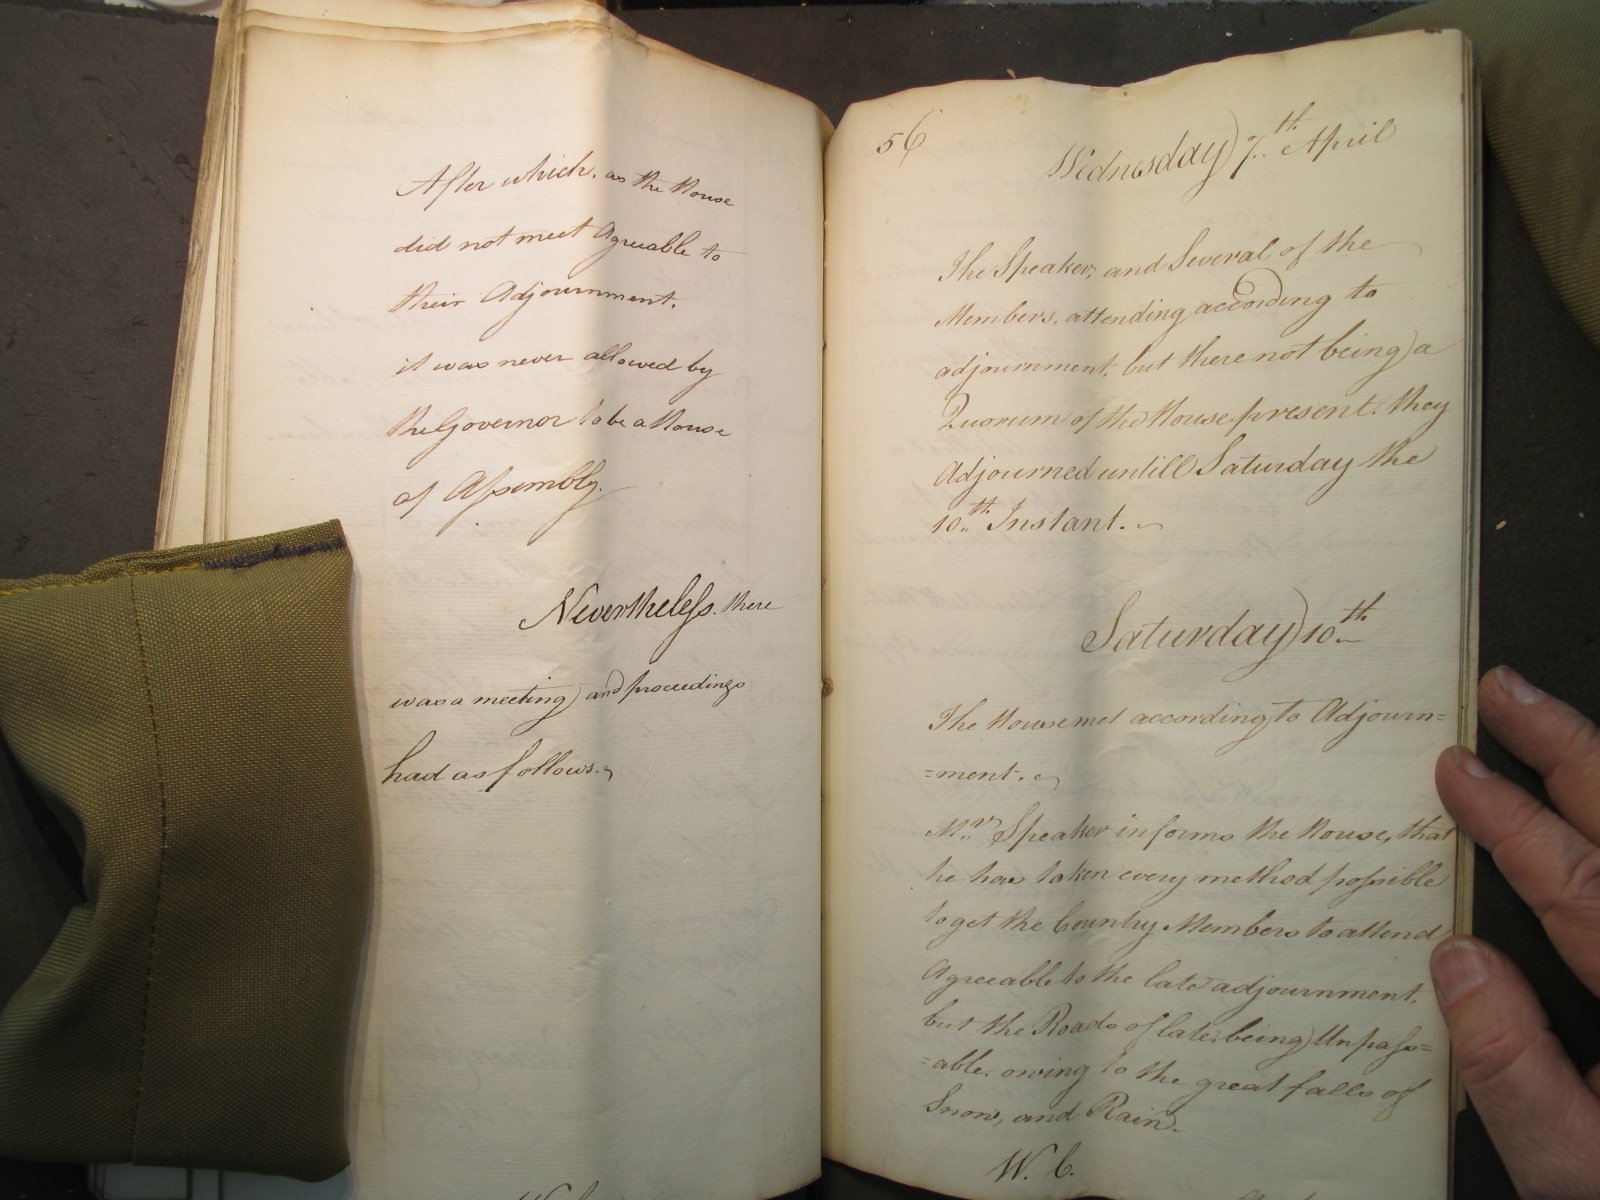 After which, as the House
did not meet Agreable to
their Adjournment,
it was never allowed by
the Governor to be a House
of Assembly.
Nevertheless there
was a meeting and proceedings
had as follows.
56
Wednesday 7th April
The Speaker, and Several of the
Members, attending according to
adjournment, but there not being a
Quorum of the House present, they
Adjourned untill Saturday the
10th Instant.
Saturday 10th
The House met according to Adjourn=
=ment.
Mr Speaker informs the House, that
he has taken every method possible
to get the Country Members to attend
Agreeable to the late adjournment,
but the Roads of late, being Unpass=
=able, owing to the great falls of
Snow, and Rain.
W. C.